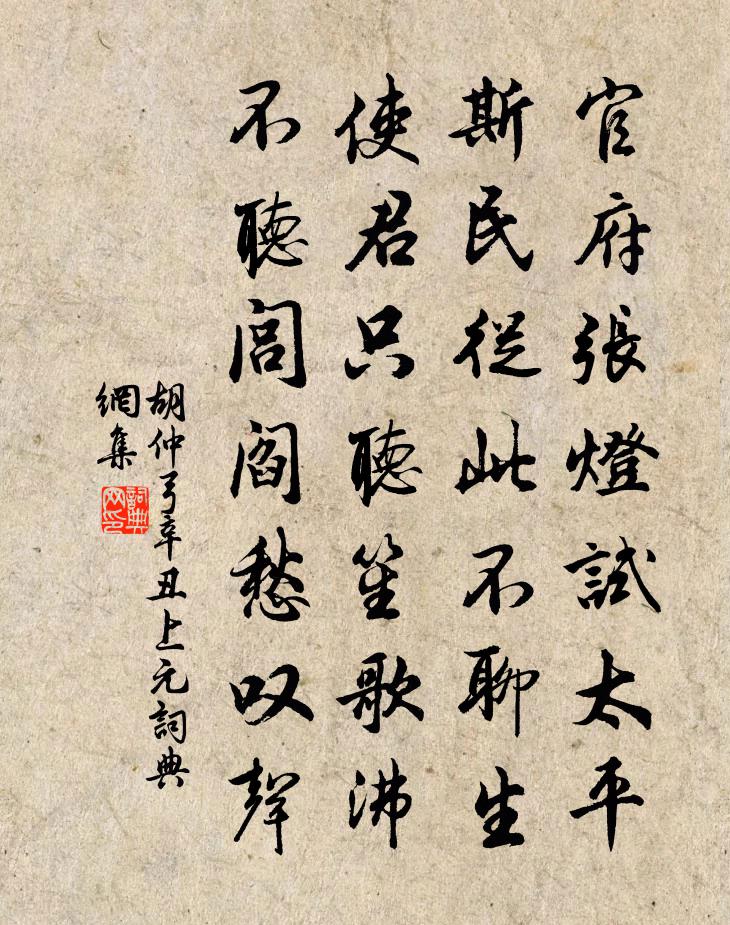 官府張燈試太平
斯民從此不聊生
使君只聽笙歌沸
不聽閭閻愁叹聲
胡仲弓辛丑上元詞典
網集
詞典
网印